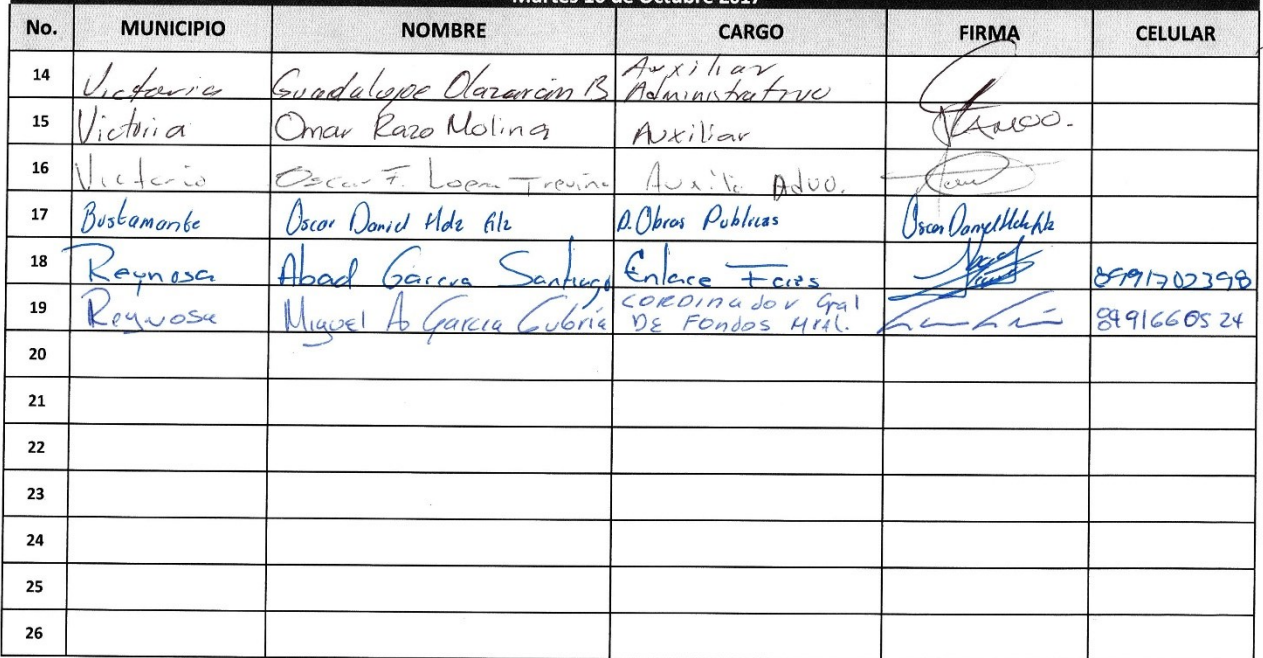 Martes 10 de Octubre 2017
No. MUNICIPIO NOMBRE CARGO FIRMA CELULAR
14 Victoria Guadalupe Olazarán B Auxiliar Administrativo
15 Victoria Omar Razo Molina Auxiliar
16 Victoria Oscar F. Loera Treviño Auxilia Advo.
17 Bustamante Oscar Daniel Hdz Glz D. Obras Publicas Oscar Danyel Hdz Glz
18 Reynosa Abad Garcia Santiago Enlace 8991702398
19 Reynosa Miguel A Garcia CORDINADOR Gral DE FONDOS 8991660524
20
21
22
23
24
25
26